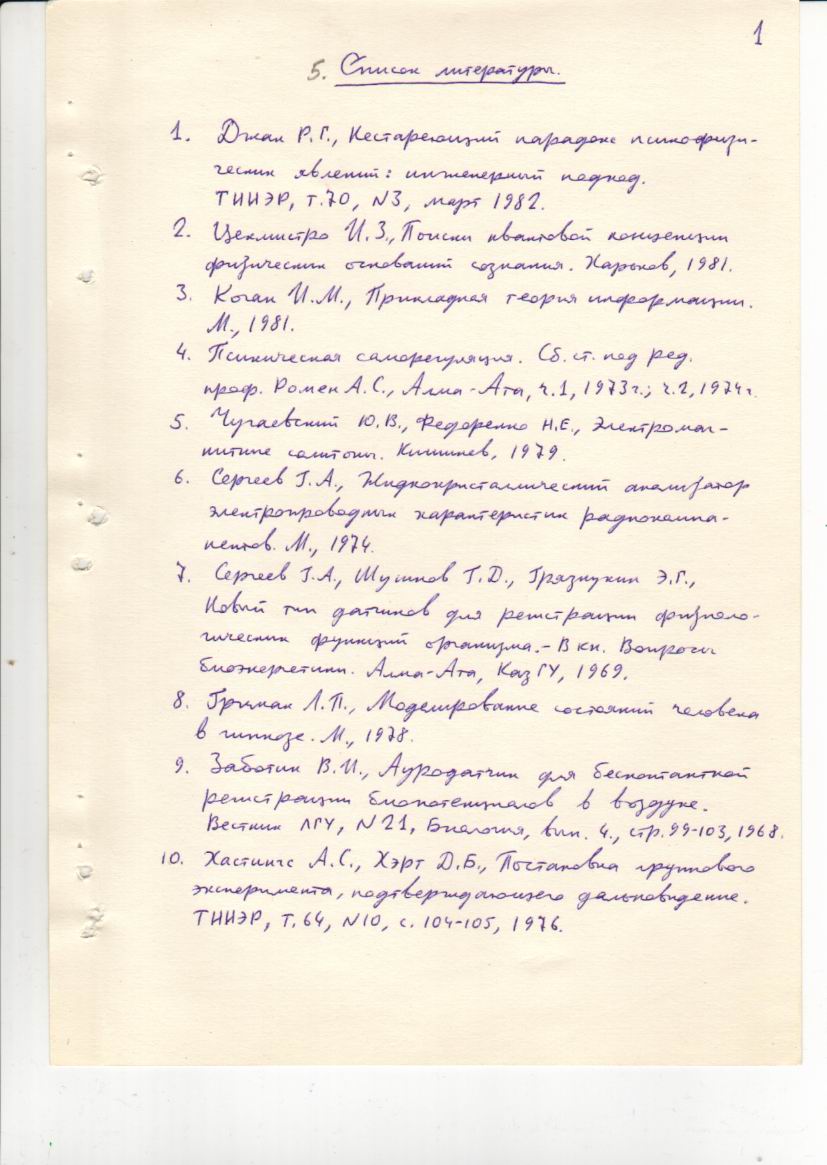 1
5. Список литературы.
1. Джан Р.Г., Нестареющий парадокс психофизи-
ческих явлений: инженерный подход.
ТИИЭР, т.70, №3, март 1982.
2. Цехмистро И.З., Поиски квантовой концепции
физических оснований сознания. Харьков, 1981.
3. Коган И.М., Прикладная теория информации.
М., 1981.
4. Психическая саморегуляция. Сб. ст. под ред.
проф. Ромен А.С., Алма-Ата, ч.1, 1973г.; ч.2, 1974г.
5. Чугаевский Ю.В., Федоренко Н.Е., Электромаг-
нитные солитоны. Кишинев, 1979.
6. Сергеев Г.А., Жидкокристаллический анализатор
электропроводных характеристик радиокомпо-
нентов. М., 1974.
7. Сергеев Г.А., Шушков Г.Д., Грязнухин Э.Г.,
Новый тип датчиков для регистрации физиоло-
гических функций организма.- В кн. Вопросы
биоэнергетики. Алма-Ата, КазГУ, 1969.
8. Гримак Л.П., Моделирование состояний человека
в гипнозе. М., 1978.
9. Заботин В.И., Ауродатчик для бесконтактной
регистрации биопотенциалов в воздухе.
Вестник ЛГУ, №21, Биология, вып. 4., стр.99-103, 1968.
10. Хастингс А.С., Хэрт Д.Б., Постановка группового
эксперимента, подтверждающего дальновидение.
ТИИЭР, Т.64, №10, с. 104-105, 1976.